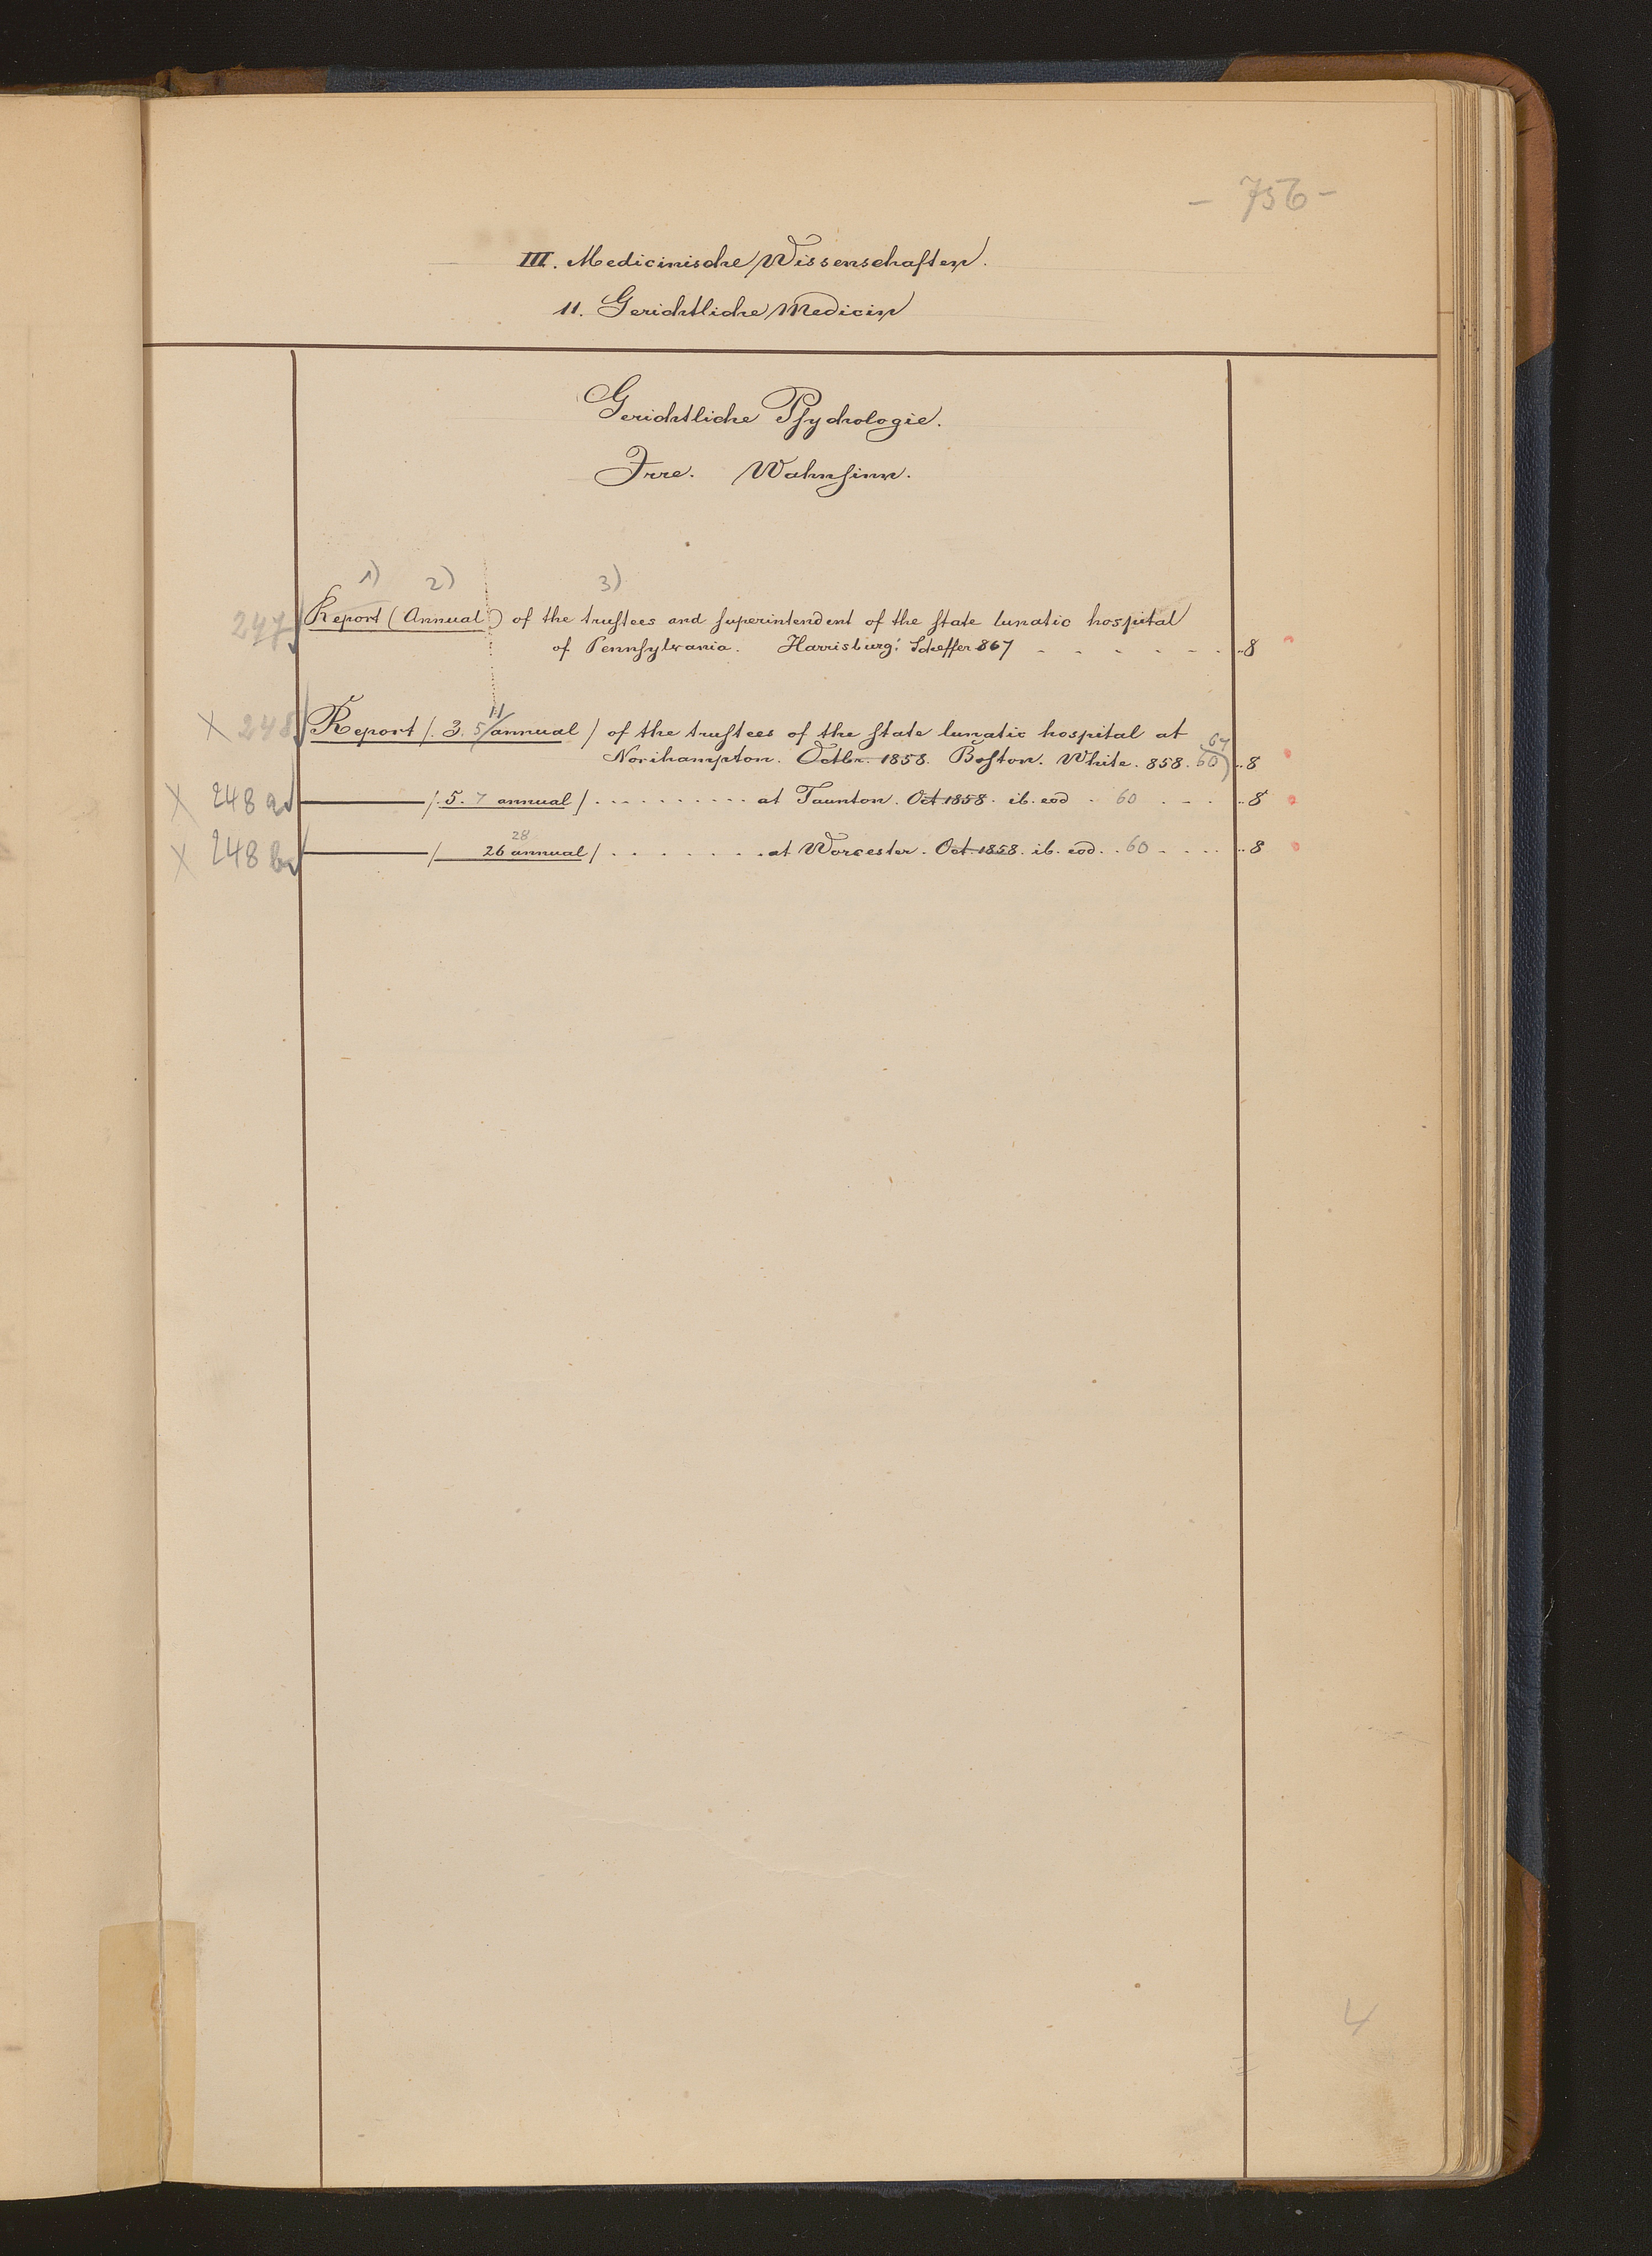 - 756 -
III. Medicinische Wissenschaften.
11. Gerichtliche Medicin
Gerichtliche Psychologie.
Irre. Wahnsinn.
1) 2) 3)
247 Report (Annual) of the trustees and superintendent of the state lunatic hospital
of Pennsylvania. Harrisburg: Scheffer 867 - - - - - - ..8
11
X 248 Report /. 3. 5/ annual / of the trustees of the state lunatic hospital at
67
Norihampton. Octbr. 1858. Boston. White. 858. 60) ..8
X 248 a ——— /. 5. 7 annual /. . . . . . . . . . at Taunton. Oct 1858. ib. eod . 60 . - - . ..8
28
X 248 b ——— / 26 annual / . . . . . . . at Worcester. Oct. 1858. ib. eod. . 60 - . . . . ..8
4